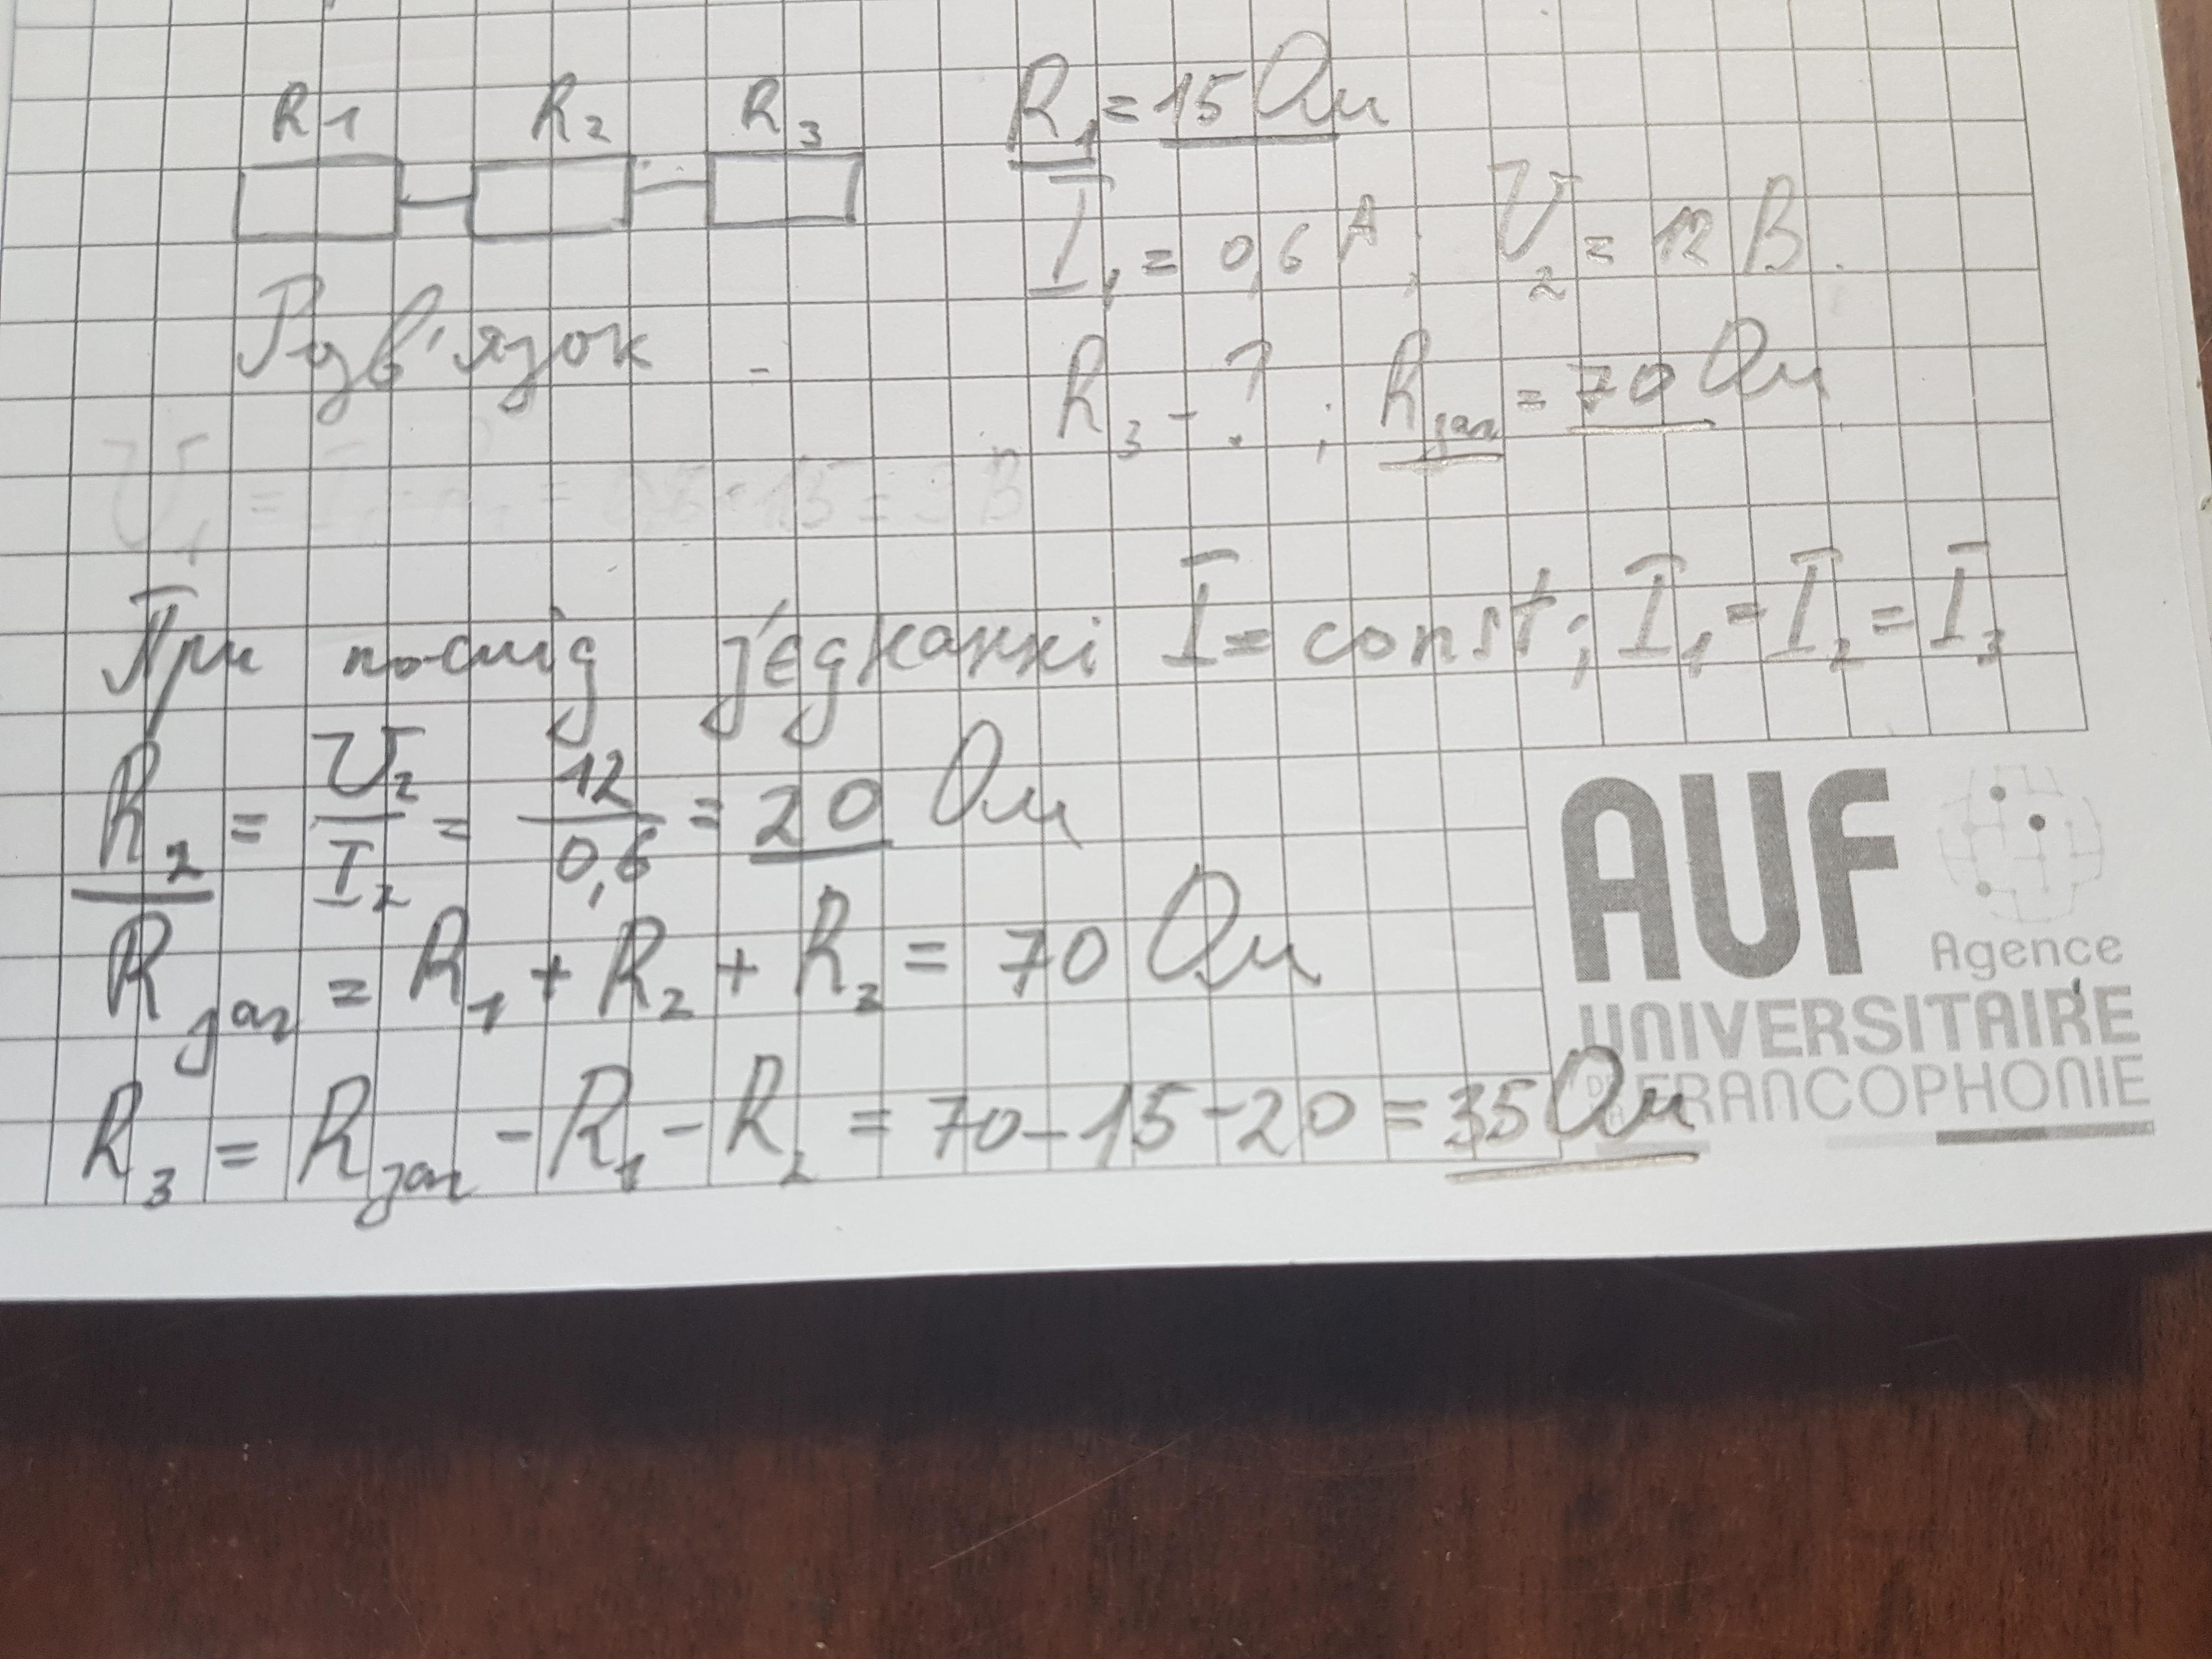 R1 R2 R3
R1 = 15 Ом
I1 = 0,6 А; U2 = 12 В.
Розв'язок -
R3 - ? ; Rзаг = 70 Ом
При послід з'єднанні I = const; I1 = I2 = I3
R2 = U2/I2 = 12/0,6 = 20 Ом
Rзаг = R1 + R2 + R3 = 70 Ом
R3 = Rзаг - R1 - R2 = 70 - 15 - 20 = 35 Ом
AUF
Agence
UNIVERSITAIRE
FRANCOPHONIE